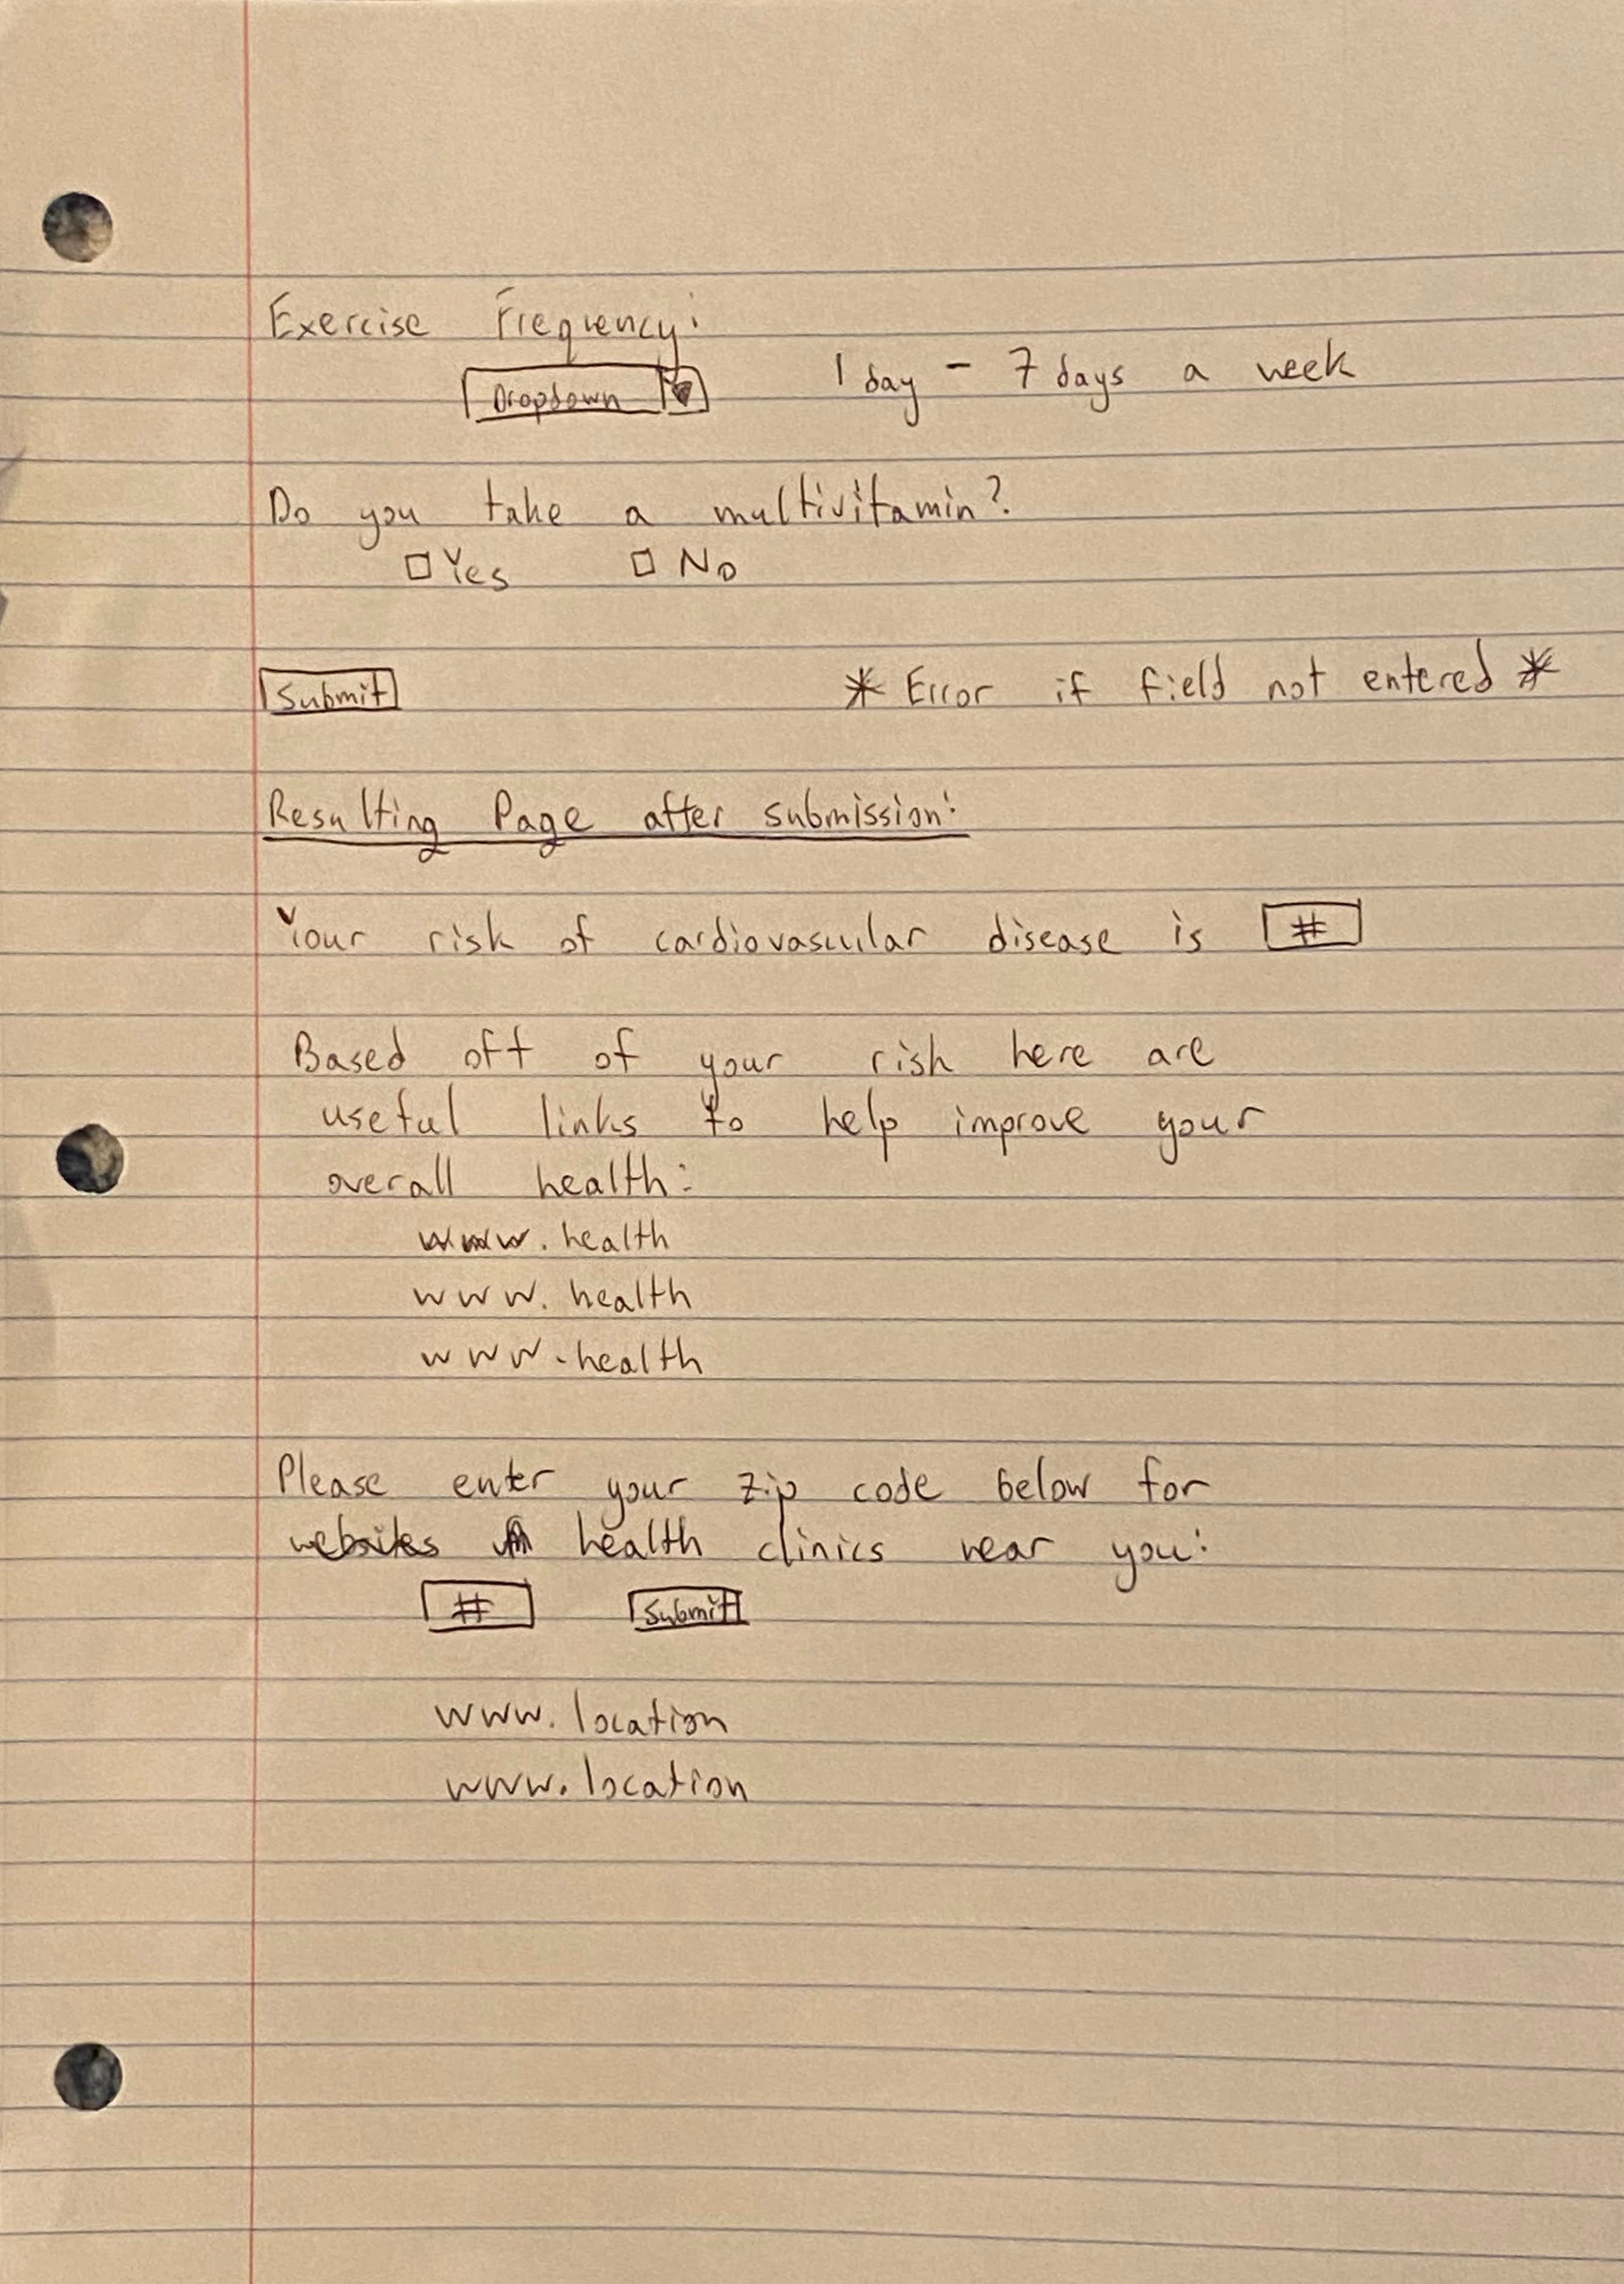 Exercise Frequency:
Dropdown 1 day - 7 days a week
Do you take a multivitamin?
Yes No
Submit * Error if field not entered *
Resulting Page after submission:
Your risk of cardiovascular disease is #
Based off of your risk here are
useful links to help improve your
overall health:
www.health
www.health
www.health
Please enter your zip code below for
websites health clinics near you:
# Submit
www.location
www.location